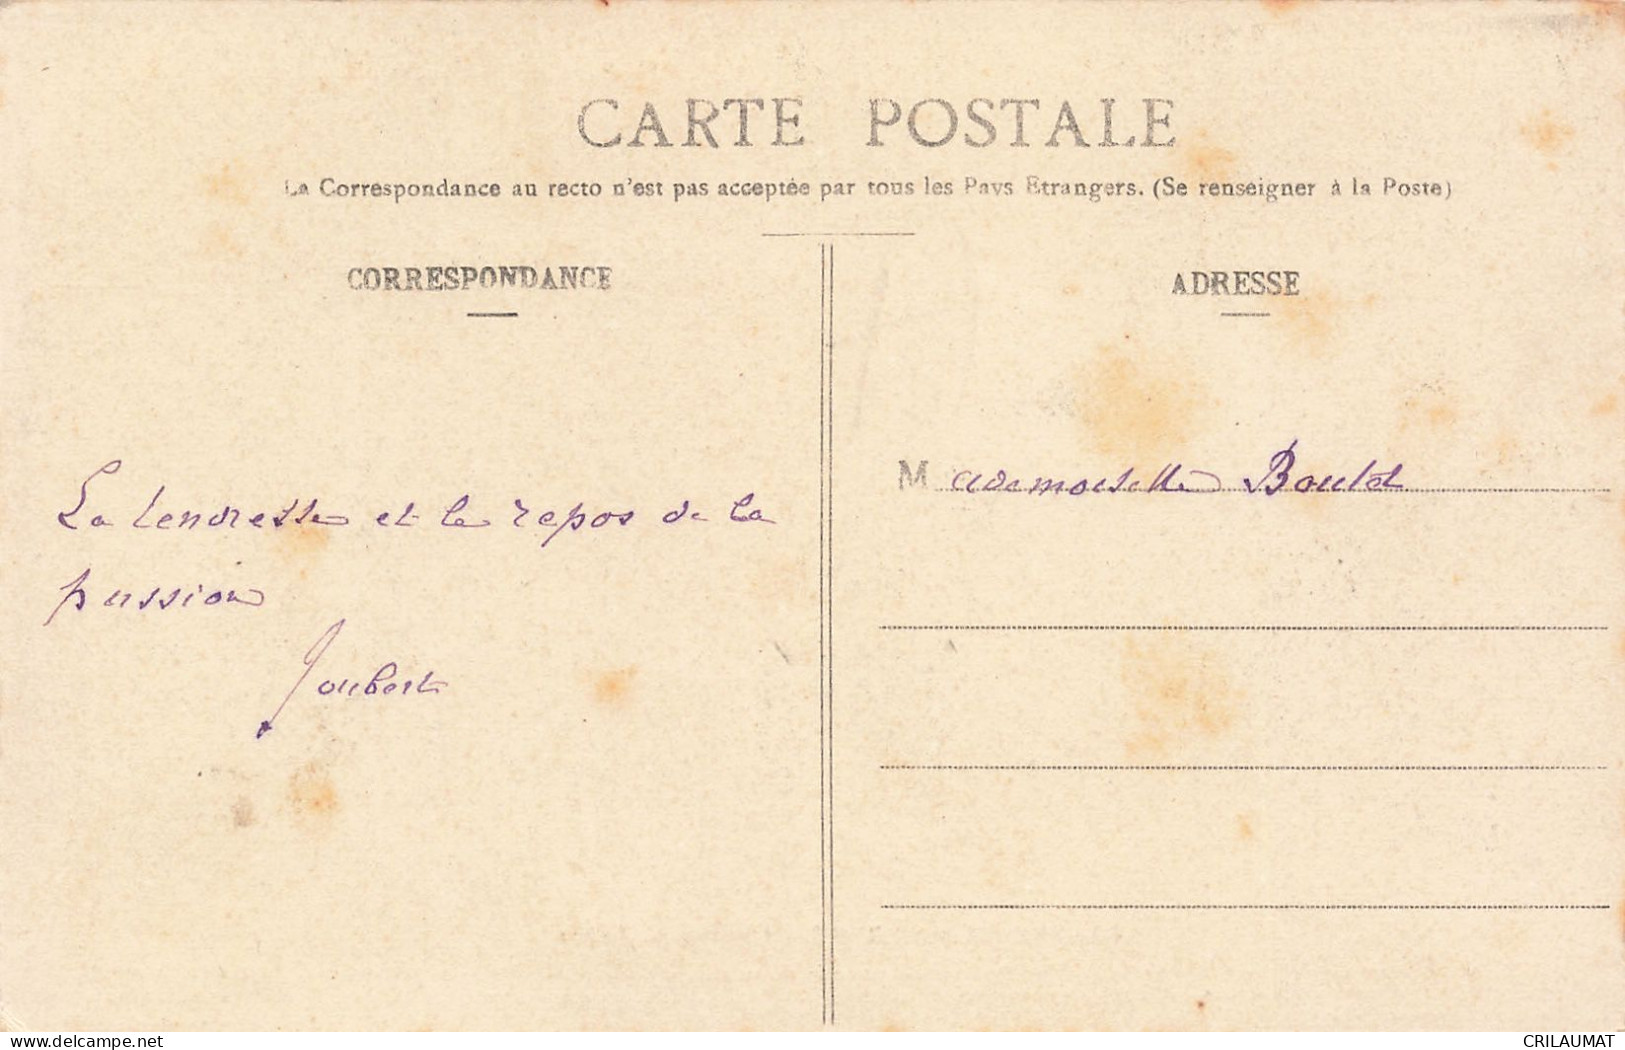 CARTE POSTALE
La Correspondance au recto n'est pas acceptée par tous les Pays Etrangers. (Se renseigner à la Poste)
CORRESPONDANCE
La tendresse et le repos de la
passion
Joubert
ADRESSE
Mademoiselle Boulet
www.delcampe.net
CRILAUMAT